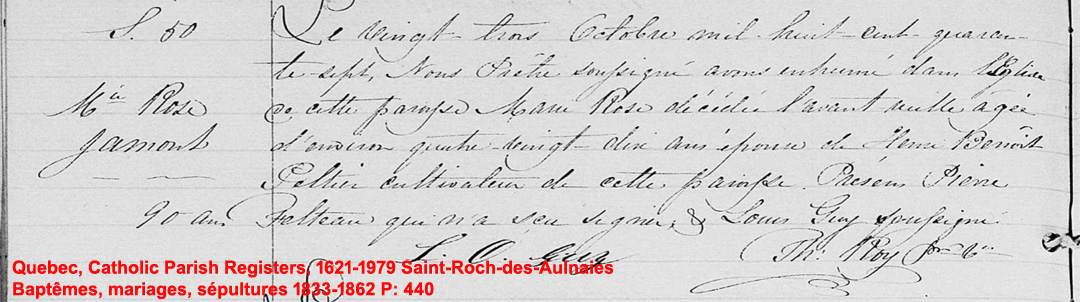 S. 50
Mie Rose
Jamont
90 ans
Le vingt-trois Octobre mil-huit-cent-quaran-
te-sept, Nous Prêtre soussigné avons inhumé dans l'Eglise
de cette paroisse Marie Rose décédée l'avant veille agée
d'environ quatre-vingt-dix ans épouse de Henri Benoît
Peltier cultivateur de cette paroisse. Présens Pierre
Pelteau qui n'a seu signer, & Louis Guy soussigné
L. O. Guy Ths. Roy
Quebec, Catholic Parish Registers, 1621-1979 Saint-Roch-des-Aulnaies
Baptêmes, mariages, sépultures 1833-1862 P: 440